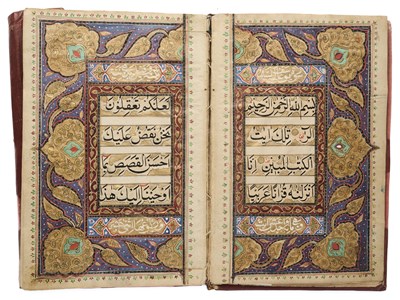 بِسْمِ اللهِ الرَّحْمٰنِ الرَّحِيْمِ
الٓرٰ تِلْكَ اٰيٰتُ
الْكِتٰبِ الْمُبِيْنِ اِنَّا
اَنْزَلْنٰهُ قُرْاٰنًا عَرَبِيًّا
لَعَلَّكُمْ تَعْقِلُوْنَ
نَحْنُ نَقُصُّ عَلَيْكَ
اَحْسَنَ الْقَصَصِ بِمَا
اَوْحَيْنَا اِلَيْكَ هٰذَا